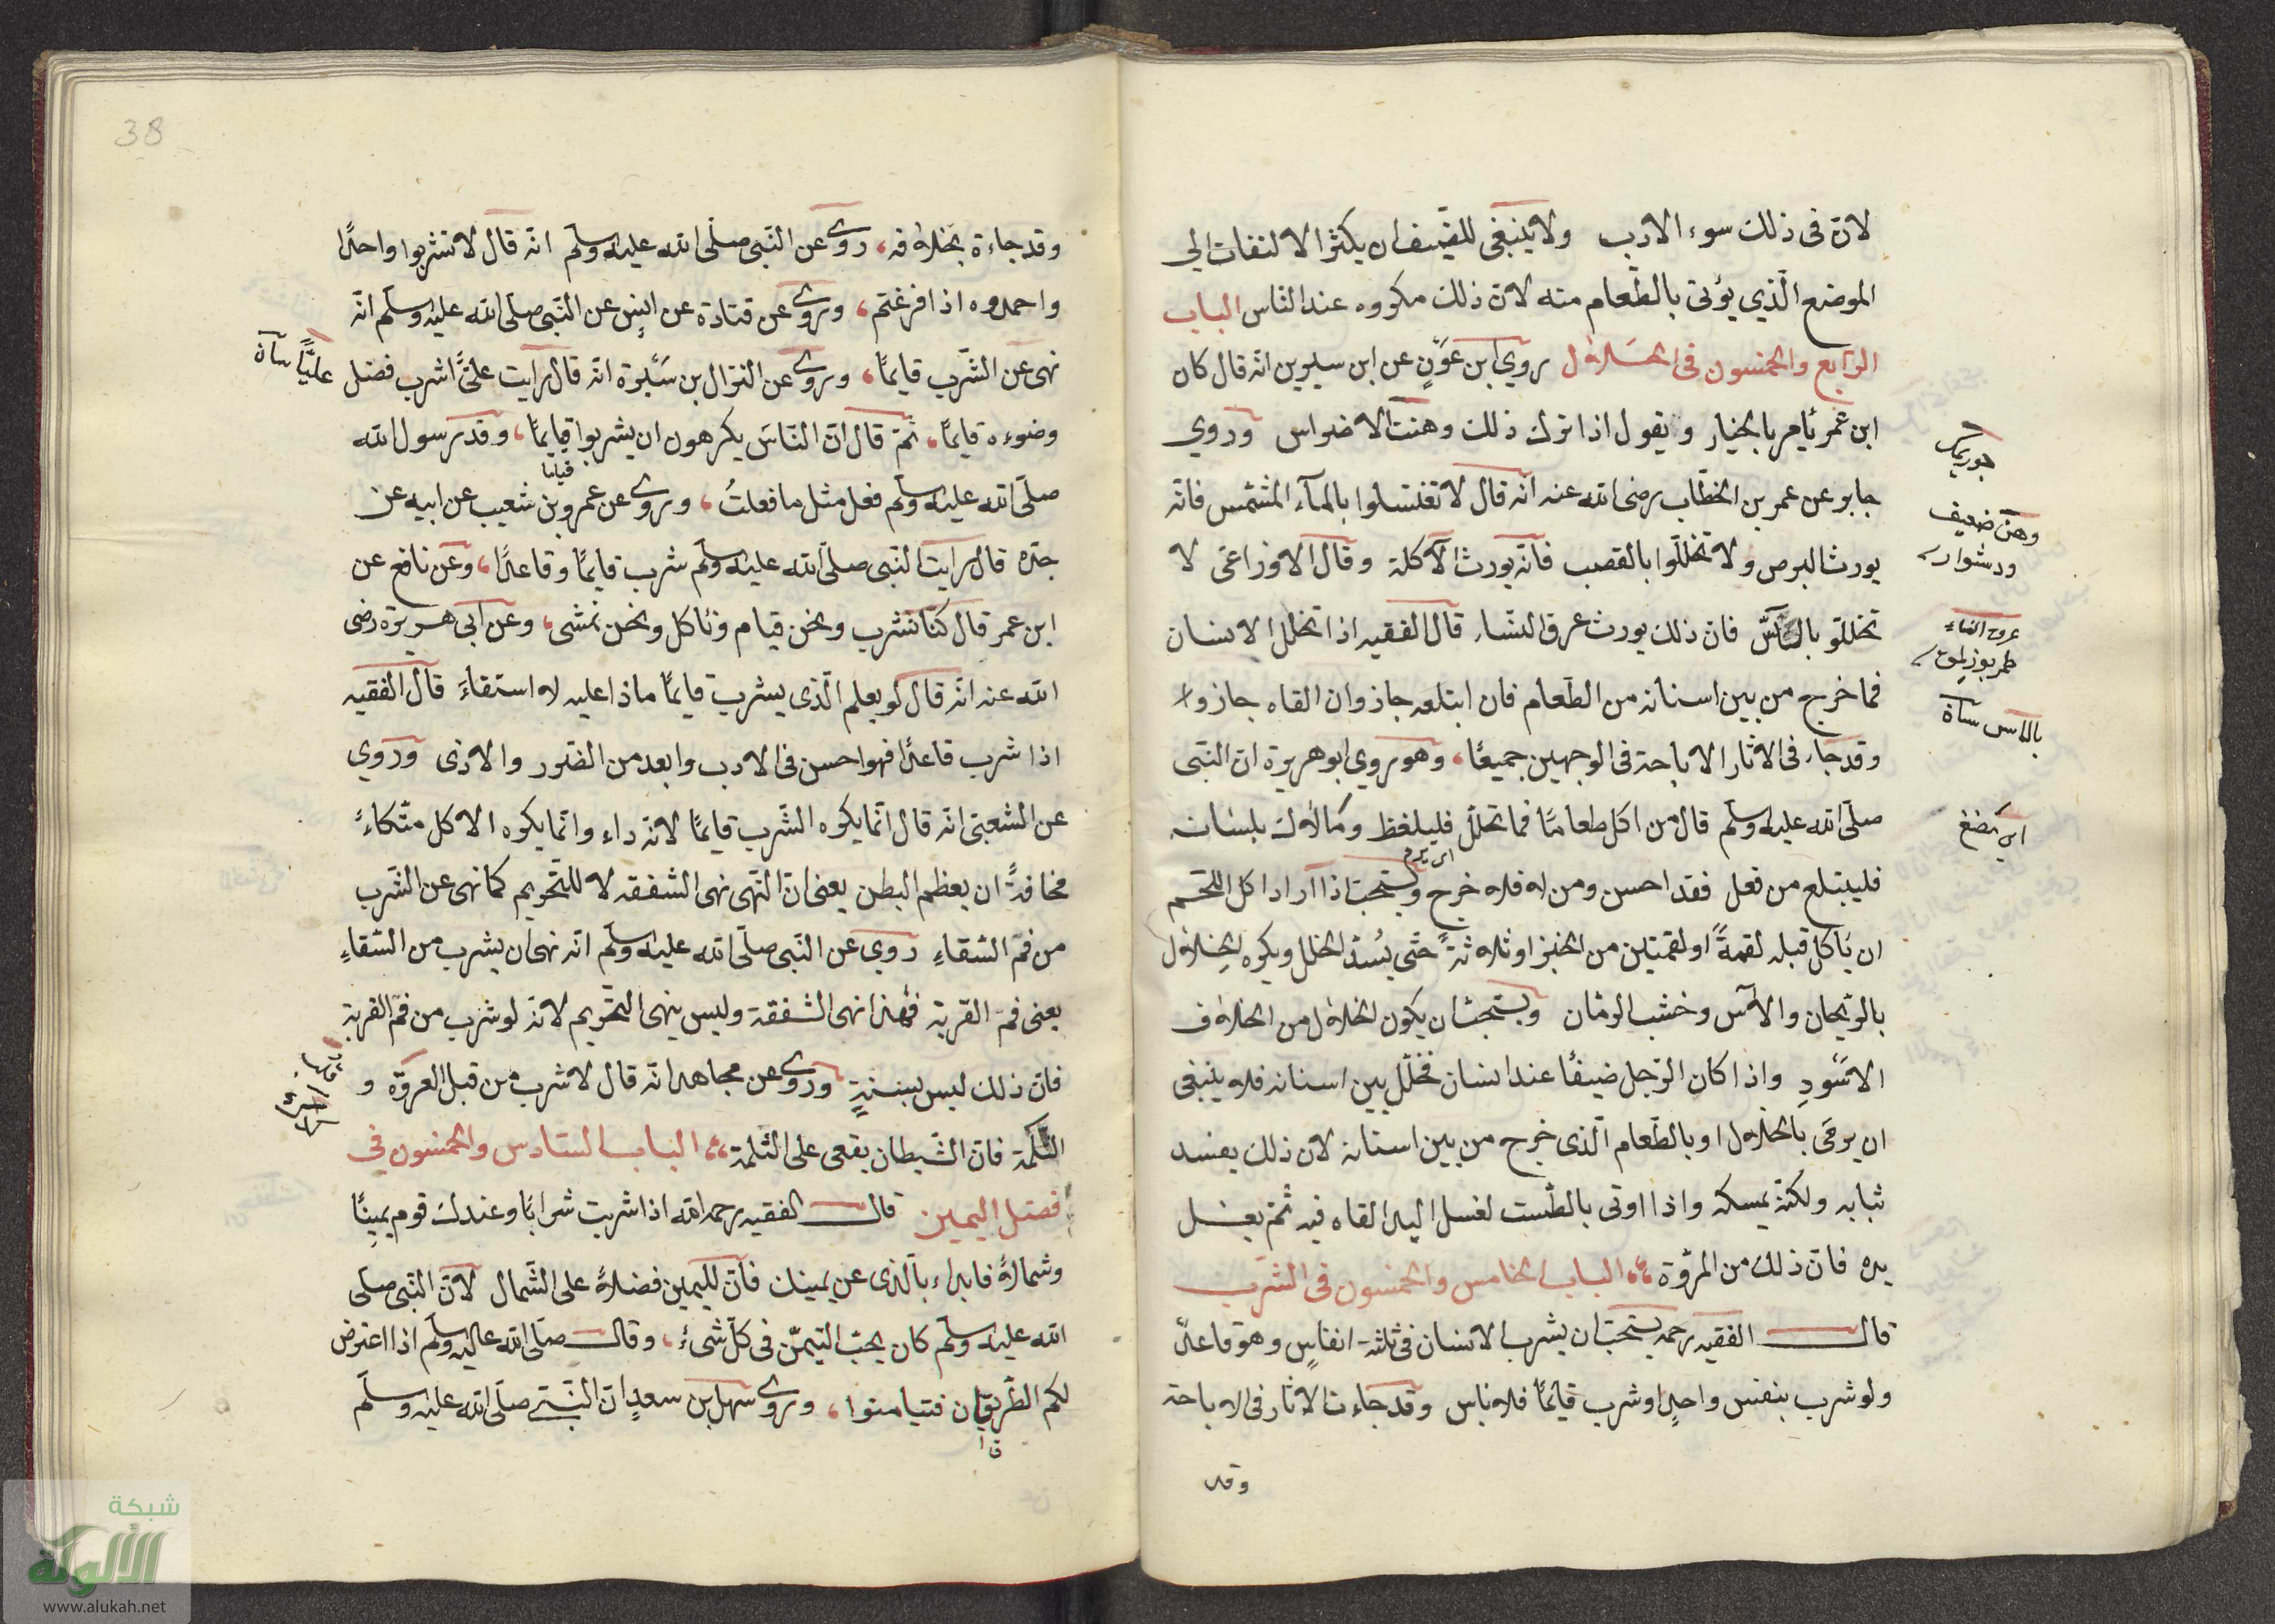 لان فى ذلك سوء الادب ولا ينبغى للضيف ان يكثر الالتفات الى
الموضع الّذي يؤتى بالطّعام منه لان ذلك مكروه عند الناس الباب
الرّابع والخمسون فى الخلال روي ابن عَوْنٍ عن ابن سيرين انه قال كان
ابن عمر يأمر بالخيار ويقول اذا ترك ذلك وهنت الاضراس وروي
جابر عن عمر بن الخطّاب رضى الله عنه انه قال لا تغتسلوا بالمآء المشمس فانه
يورث البرص ولا تخللّوا بالقصب فانّه يورث الآكلة وقال الاوزاعى لا
تخللّو بالآسّ فان ذلك يورث عرق النسّاء قال الفقيه اذا تخلل الانسان
فما خرج من بين اسنانه من الطّعام فان ابتلعه جاز وان القاه جاز و
وقد جاء فى الاثار الاباحة فى الوجهين جميعًا، وهو روي ابو هريرة ان النبّى
صلّى الله عليه وسلّم قال من اكل طعامًا فما تخللّ فليلفظ وما لاك بلسانه
فليبتلع من فعل فقد احسن ومن لا فلا خرج ويستحبّ اذا اراد اكل اللّحم
ان يأكل قبله لقمةً او لقمتين من الخبز او ثلاثةً حتّى يُسدّ الخلل ويكره الخلال
بالرّيحان والآس وخشب الرمّان ويستحبّ ان يكون الخلال من الخلاف
الاسْوَدِ واذا كان الرّجل ضيفًا عند انسان فخلّل بين اسنانه فلا ينبغى
ان يرمى بالخلال او بالطّعام الّذى خرج من بين اسنانه لان ذلك يفسد
ثيابه ولكنّه يمسكه واذا اوتى بالطّست لغسل اليد القاه فيه ثمّ يغسل
يده فانّ ذلك من المروّة الباب الخامس والخمسون فى الشرب
قال الفقيه رحمه يستحبّ ان يشرب الانسان فى ثلثة انفاسٍ وهو قاعدٌ
ولو شرب بنفس واحدٍ او شرب قائمًا فلا باس وقد جاءت الاثار فى الاباحة
وقد
وهن ضعيف
بالاس
اى يمضغ
38
وقد جاءة بخلافه، روى عن النّبى صلّى الله عليه وسلّم انّه قال لا تشربوا واحدًا
واحمدوه اذا فرغتم، وروى عن قتادة عن انسٍ عن النّبى صلّى الله عليه وسلّم انّه
نهى عن الشّرب قايمًا، وروى عن النزال بن سَبُرة انّه قال رايت علىًّ اشرب فضل
عليًّا
وضوءه قايمًا، ثمّ قال انّ النّاسَ يكرهون ان يشربوا قايمًا، وقد رسول الله
قياما
صلّى الله عليه وسلّم فعل مثل ما فعلتُ، وروى عن عمرو بن شعيب عن ابيه عن
جدّه قال رايت النّبى صلّى الله عليه وسلّم شرب قايمًا وقاعدًا، وعن نافع عن
ابن عمر قال كنّا نشرب ونحن قيام ونأكل ونحن نمشى، وعن ابى هريرة رضى
الله عنه انّه قال لو يعلم الّذى يشرب قايمًا ماذا عليه لاستقاءَ قال الفقيه
اذا شرب قاعدًا فهو احسن فى الادب وابعد من الضّرر والاذى وروي
عن الشّعبىّ انّه قال انّما يكره الشّرب قايمًا لانّه داء وانّما يكره الاكل متّكاءً
مخافةً ان يعظم البطن يعنى انّ النّهى نهى الشفقه لا للتّحريم كما نهى عن الشّرب
من فمّ السّقاءِ روي عن النّبى صلّى الله عليه وسلّم انّه نهى ان يشرب من السّقاءِ
يعنى فمّ القربة فهذا نهى الشّفقة وليس ينهى التّحريم لانّه لو شرب من فمّ القربة
فانّ ذلك ليس بسنةٍ وروى عن مجاهد انّه قال لا شرب من قبل العروّه و
الثّلمة فانّ الشّيطان يقعى على الثّلمة الباب السّادس والخمسون فى
فضل اليمين قال الفقيه رحمه الله اذا شربت شرابًا وعندك قوم يمينًا
وشمالاً فابداء بالذى عن يمينك فانّ لليمين فضلاً على الشّمال لانّ النّبى صلّى
الله عليه وسلّم كان يحبّ التيمّن فى كلّ شىءٍ، وقال صلّى الله عليه وسلّم اذا اعترض
لكم الطّريقان فتيامنوا، وروى سهل بن سعدٍ انّ النّبىّ صلّى الله عليه وسلّم
شبكة
الألوكة
www.alukah.net